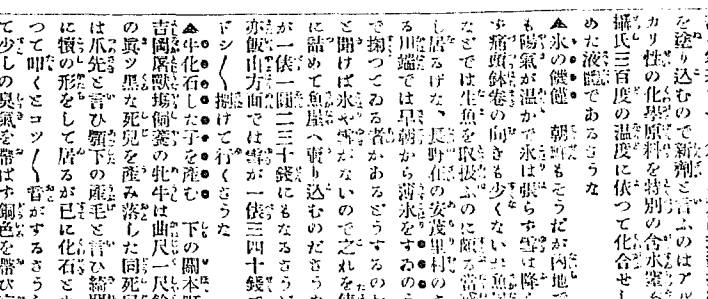 を塗り込むので新劑と言ふのはアル
カリ性の化學原料を特別の含水量を
攝氏三百度の温度に依つて化合せし
めた液體であるさうな
▲氷の饑饉　朝鮮もさうだが内地で
も陽氣が温かで氷は張らず雪は降ら
ず痛頭鉢卷の向きも少くない
などでは生魚を取扱ふのに頗る當惑
し居るげな、長野在の安茂里村の
る川端では早朝から薄氷をすゐのう
で掬つてゐる者があるどうするのか
と聞けば氷や雪がないので之れを俵
に詰めて魚屋へ賣り込むのださうな
が一俵一圓二三十錢にもなるさうだ
亦飯山方面では雪が一俵三四十錢で
ドシ〳〵捌けて行くさうな
▲牛化石した子を産む　下の關本町
吉岡屠獸場飼養の牝牛は曲尺一尺餘
の眞ツ黒な死兒を産み落した同死兒
は爪先と言ひ顎下の産毛と言ひ綺麗
に犢の形をして居るが已に化石とな
つて叩くとコツ〳〵音がするさうな
て少しの臭氣を帶ばず銅色を帶び